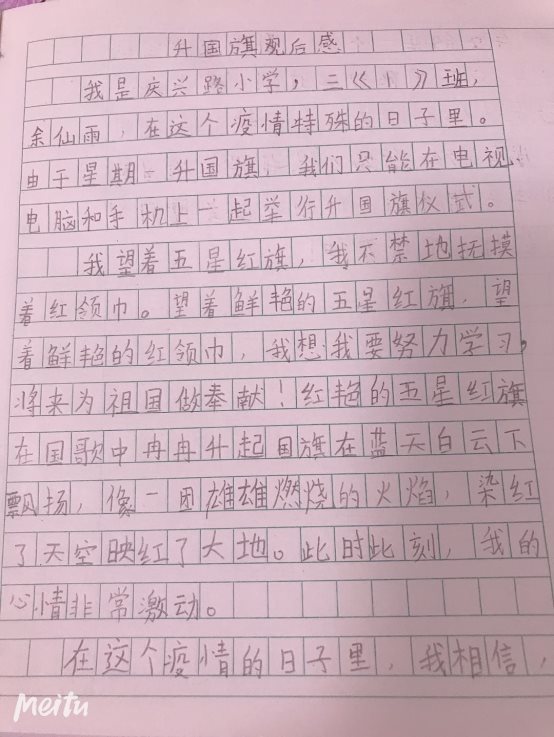 升国旗观后感
我是庆兴路小学，三《1》班，
余仙雨，在这个疫情特殊的日子里。
由于星期一升国旗，我们只能在电视、
电脑和手机上一起举行升国旗仪式。
我望着五星红旗，我不禁地抚摸
着红领巾。望着鲜艳的五星红旗，望
着鲜艳的红领巾，我想我要努力学习，
将来为祖国做奉献！红艳的五星红旗
在国歌中冉冉升起国旗在蓝天白云下
飘扬，像一团雄雄燃烧的火焰，染红
了天空映红了大地。此时此刻，我的
心情非常激动。
在这个疫情的日子里，我相信，
Meitu